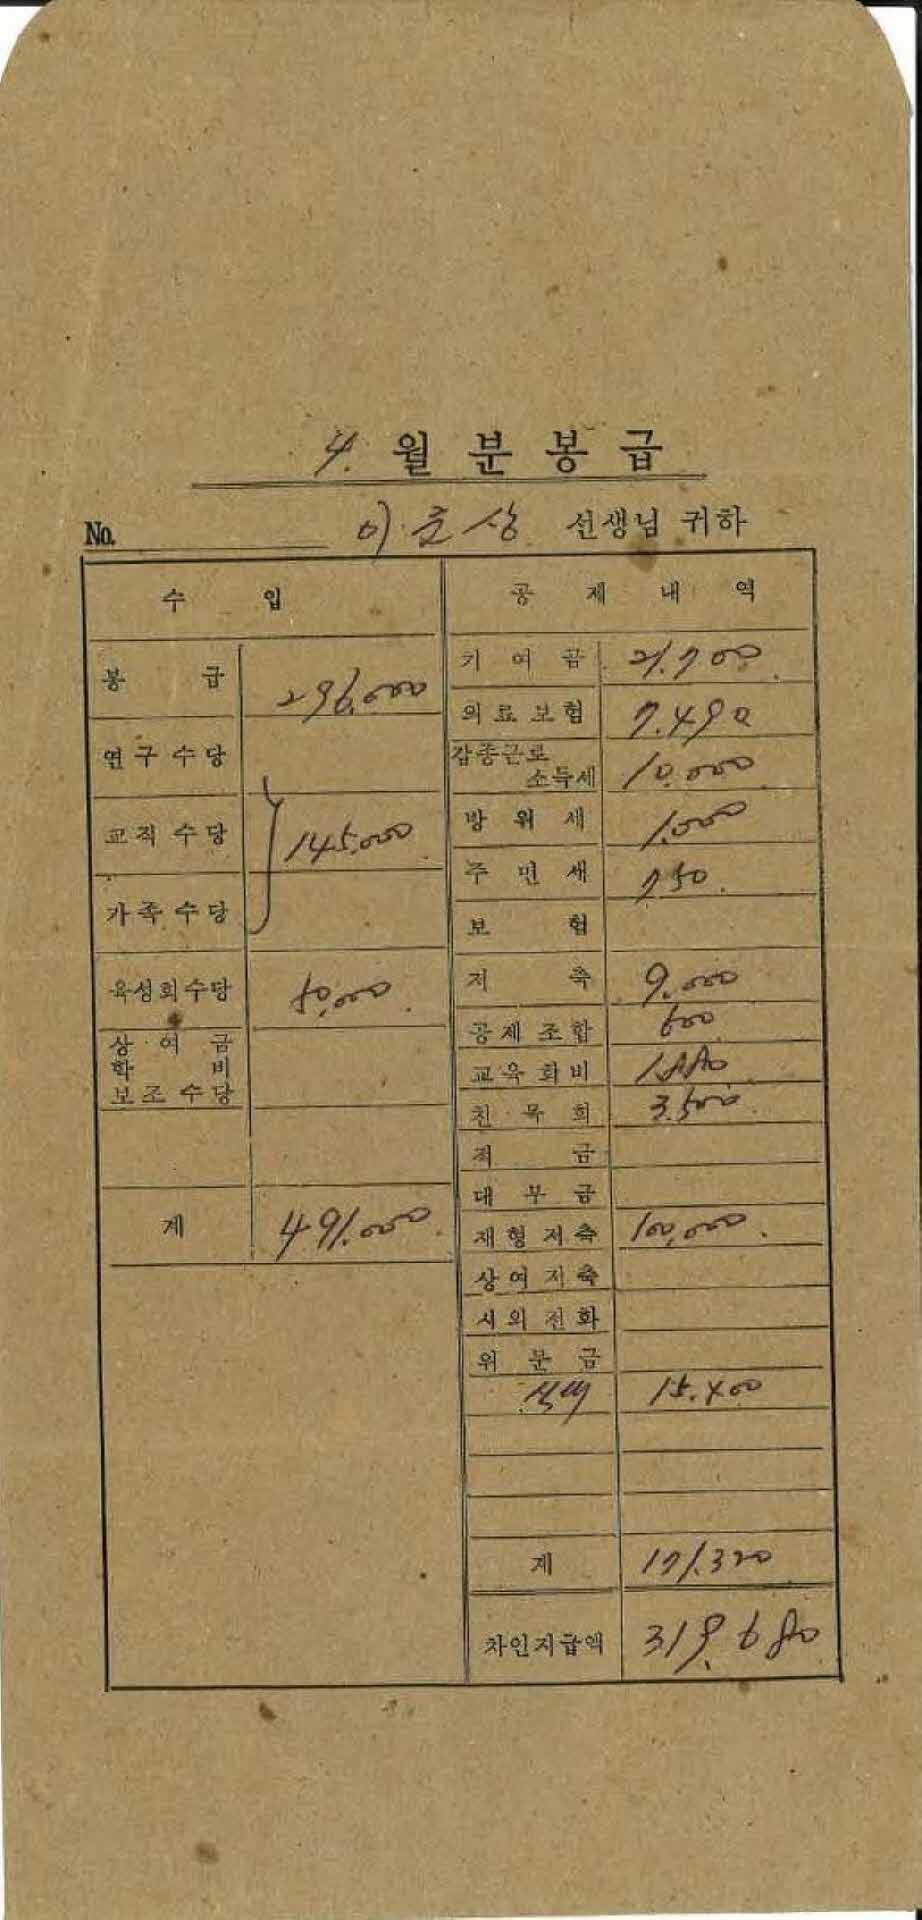 4. 월분봉급
No. 이준상 선생님 귀하
수 입
봉 급 296.000
연구수당
교직수당 145.000
가족수당
육성회수당 50.000
상 여 금
학 비
보조수당
계 491.000
공 제 내 역
기 여 금 21.700
의료보험 7.490
갑종근로
소득세 10.000
방 위 세 1.000
주 민 세 750
보 험
저 축 9.000
공제조합 600
교육회비 1.880
친 목 회 3.500
적 금
대 부 금
재형저축 100,000
상여저축
시외전화
위 문 금
15.400
계 171.320
차인지급액 319.680